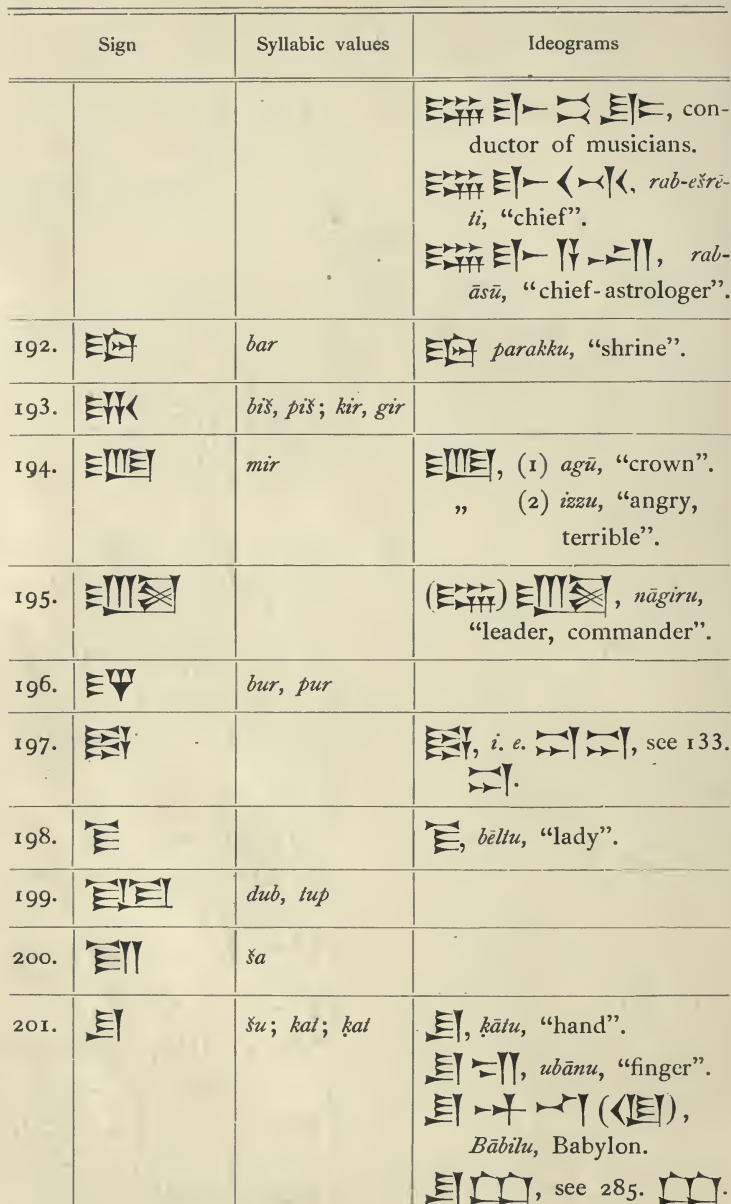 Sign Syllabic values Ideograms
𒇽 𒃲, con-
ductor of musicians.
𒇽 𒃲 𒌋, rab-ešrē-
ti, “chief”.
𒇽 𒃲 𒀀 𒍪, rab-
āsū, “chief-astrologer”.
192. 𒁈 bar 𒁈 parakku, “shrine”.
193. 𒄫 biš, piš; kir, gir
194. 𒂆 mir 𒂆, (1) agū, “crown”.
„ (2) izzu, “angry,
terrible”.
195. (𒇽), nāgiru,
“leader, commander”.
196. 𒁓 bur, pur
197. i. e. see 133.
198. 𒃽 𒃽, bēltu, “lady”.
199. 𒁾 dub, tup
200. 𒊭 ša
201. 𒋗 šu; kat; ḳat 𒋗, ḳātu, “hand”.
𒋗 𒋛, ubānu, “finger”.
𒋗 𒀭 𒈾 (𒆠),
Bābilu, Babylon.
𒋗, see 285.